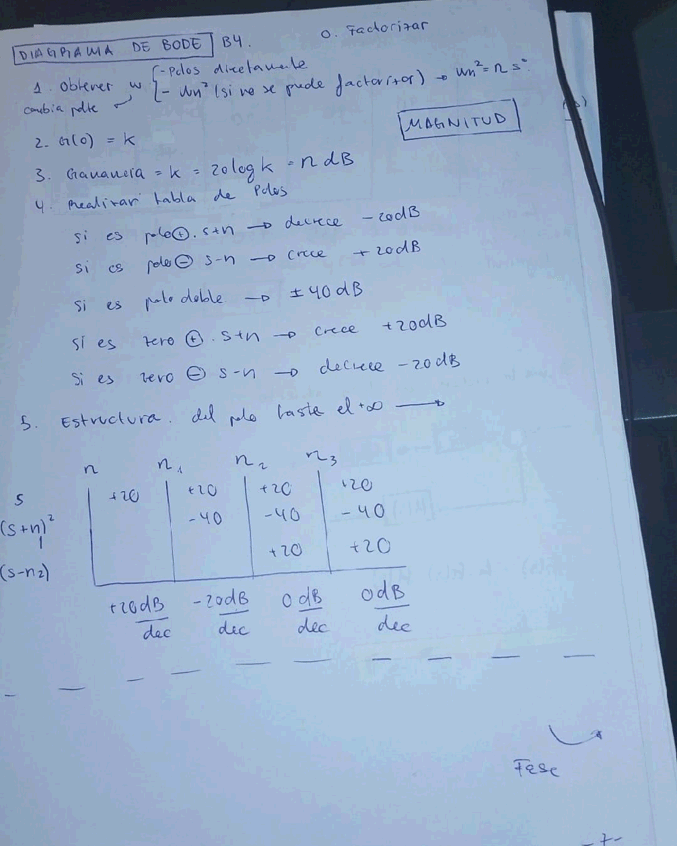 0. Factorizar
DIAGRAMA DE BODE B4.
1. Obtener w - Polos directamente
cambia pdte - Wn² (si no se puede factorizar) → Wn² = n s⁰
MAGNITUD
2. G(0) = k
3. Ganancia = k = 20 log k = n dB
4. Realizar tabla de Polos
Si es polo ⊕. s+n → decrece -20dB
Si es polo ⊖ s-n → crece +20dB
Si es polo doble → ±40dB
Si es zero ⊕. s+n → crece +20dB
Si es zero ⊖ s-n → decrece -20dB
5. Estructura. del polo hasta el +∞ →
n n₁ n₂ n₃
s +20 +20 +20 +20
(s+n)² -40 -40 -40
1
(s-n₂) +20 +20
+20dB/dec -20dB/dec 0dB/dec 0dB/dec
Fase
-7-